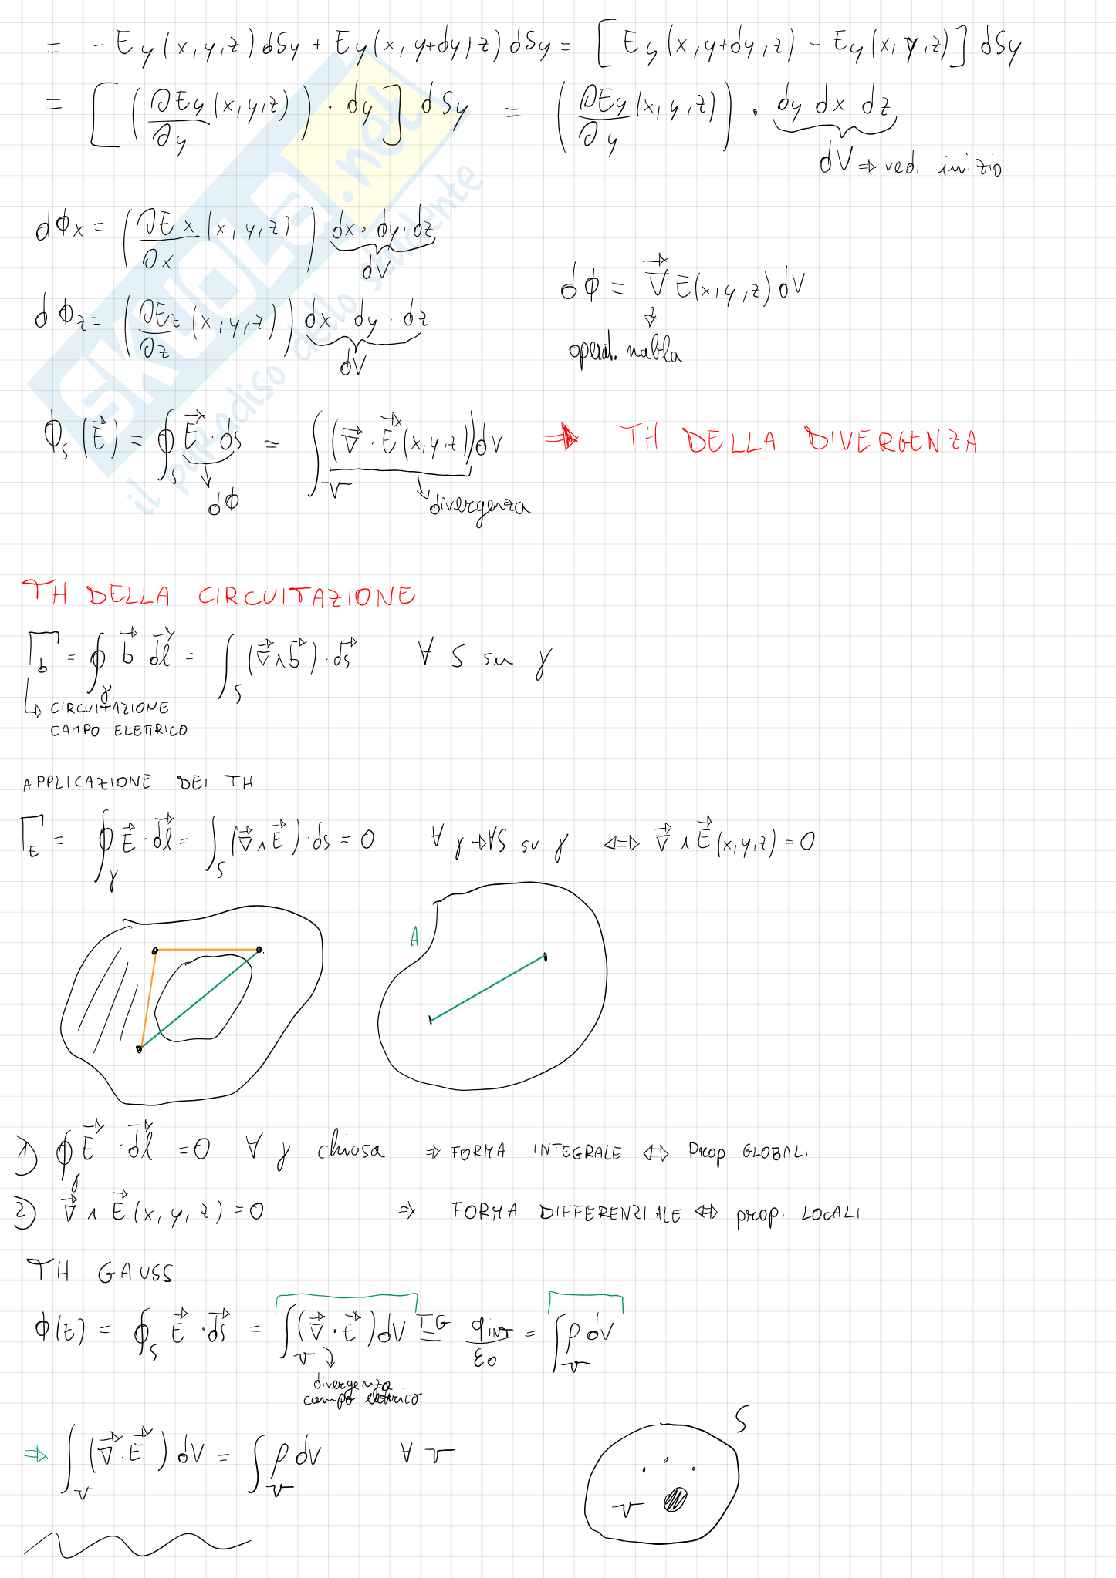 = - Ey(x,y,z) dSy + Ey(x, y+dy, z) dSy = [Ey(x, y+dy, z) - Ey(x, y, z)] dSy
= [(∂Ey/∂y (x,y,z)) · dy] dSy = (∂Ey/∂y (x,y,z)) · dy dx dz
dV ⇒ ved. inizio
dΦx = (∂Ex/∂x (x,y,z)) dx·dy·dz
dV
dΦ = ∇⃗ E(x,y,z) dV
dΦz = (∂Ez/∂z (x,y,z)) dx · dy · dz
dV
operat. nabla
Φs(E⃗) = ∮s E⃗ · ds = ∫τ (∇⃗ · E⃗(x,y,z)) dV ⇒ TH DELLA DIVERGENZA
dΦ
divergenza
TH DELLA CIRCUITAZIONE
Γb = ∮γ b⃗ dl⃗ = ∫S (∇⃗ ∧ b⃗) · ds⃗ ∀ S su γ
↳ CIRCUITAZIONE
CAMPO ELETTRICO
APPLICAZIONE DEI TH
ΓE = ∮γ E⃗ · dl⃗ = ∫S (∇⃗ ∧ E⃗) · ds = 0 ∀ γ → ∀S su γ ⇔ ∇⃗ ∧ E⃗(x,y,z) = 0
A
1) ∮γ E⃗ · dl⃗ = 0 ∀ γ chiusa ⇒ FORMA INTEGRALE ⇔ Prop GLOBALI
2) ∇⃗ ∧ E⃗(x, y, z) = 0 ⇒ FORMA DIFFERENZIALE ⇔ prop. LOCALI
TH GAUSS
Φ(E) = ∮S E⃗ · ds⃗ = ∫τ (∇⃗ · E⃗) dV =TG qINT/ε0 = ∫τ ρ dV
divergenza
campo elettrico
S
⇒ ∫τ (∇⃗ · E⃗) dV = ∫τ ρ dV ∀ τ
τ
SKUOLA.net
il paradiso dello studente